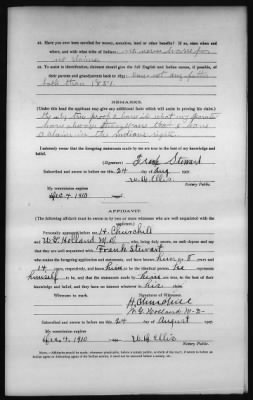 21. Have you ever been enrolled for money, annuities, land or other benefits? If so, state when
where, and with what tribe of Indians.
no claims.
22. To assist in identification, claimant should give the full English and Indian names, if possible, of
their parents and grandparents back to 1835:
back than 1851.
REMARKS.
(Under this head the applicant may give any additional facts which will assist in proving his claims.)
My only true proof I have is what my parents
have always
a claim
I solemnly swear that the foregoing statements made by me are true to the best of my knowledge
and belief.
(Signature) Frank Stewart
Subscribed and sworn to before me this 24 day of Aug 190
W. H. Ellis
Notary Public.
My commission expires
Dec. 9. 1910
AFFIDAVIT.
(The following affidavit must be sworn to by two or more witnesses who are well acquainted with the
applicant.)
Personally appeared before me H. Churchill
and W. G. Holland M.D. who, being duly sworn, on oath depose and say
that they are well acquainted with Frank Stewart
who makes the foregoing application and statements, and have known him for 8 years and
14 years, respectively, and know him to be the identical person he represents
himself to be, and that the statements made by him are true, to the best of their
knowledge and belief, and they have no interest whatever in his claim.
Witnesses to mark.
Signatures of Witnesses.
H. Churchill
W. G. Holland M.D.
Subscribed and sworn to before me this 24 day of August 190
My commission expires
Dec. 9. 1910
W. H. Ellis
Notary Public.